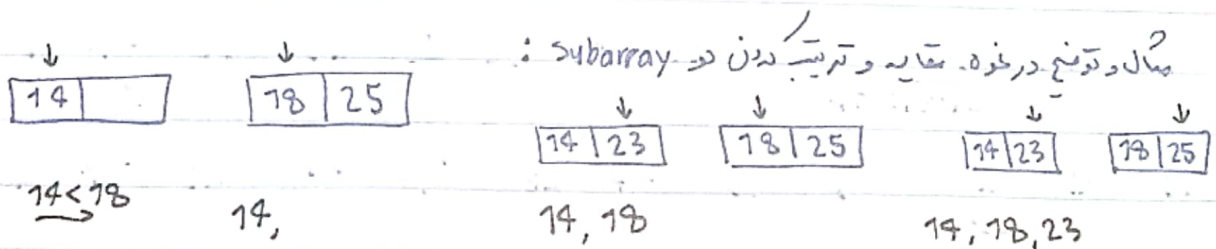 مثال و توضیح در نحوه مقایسه و ترتیب کردن دو subarray :
14 18 25
14 23 18 25 14 23 18 25
14<18
14, 14, 18 14, 18, 23